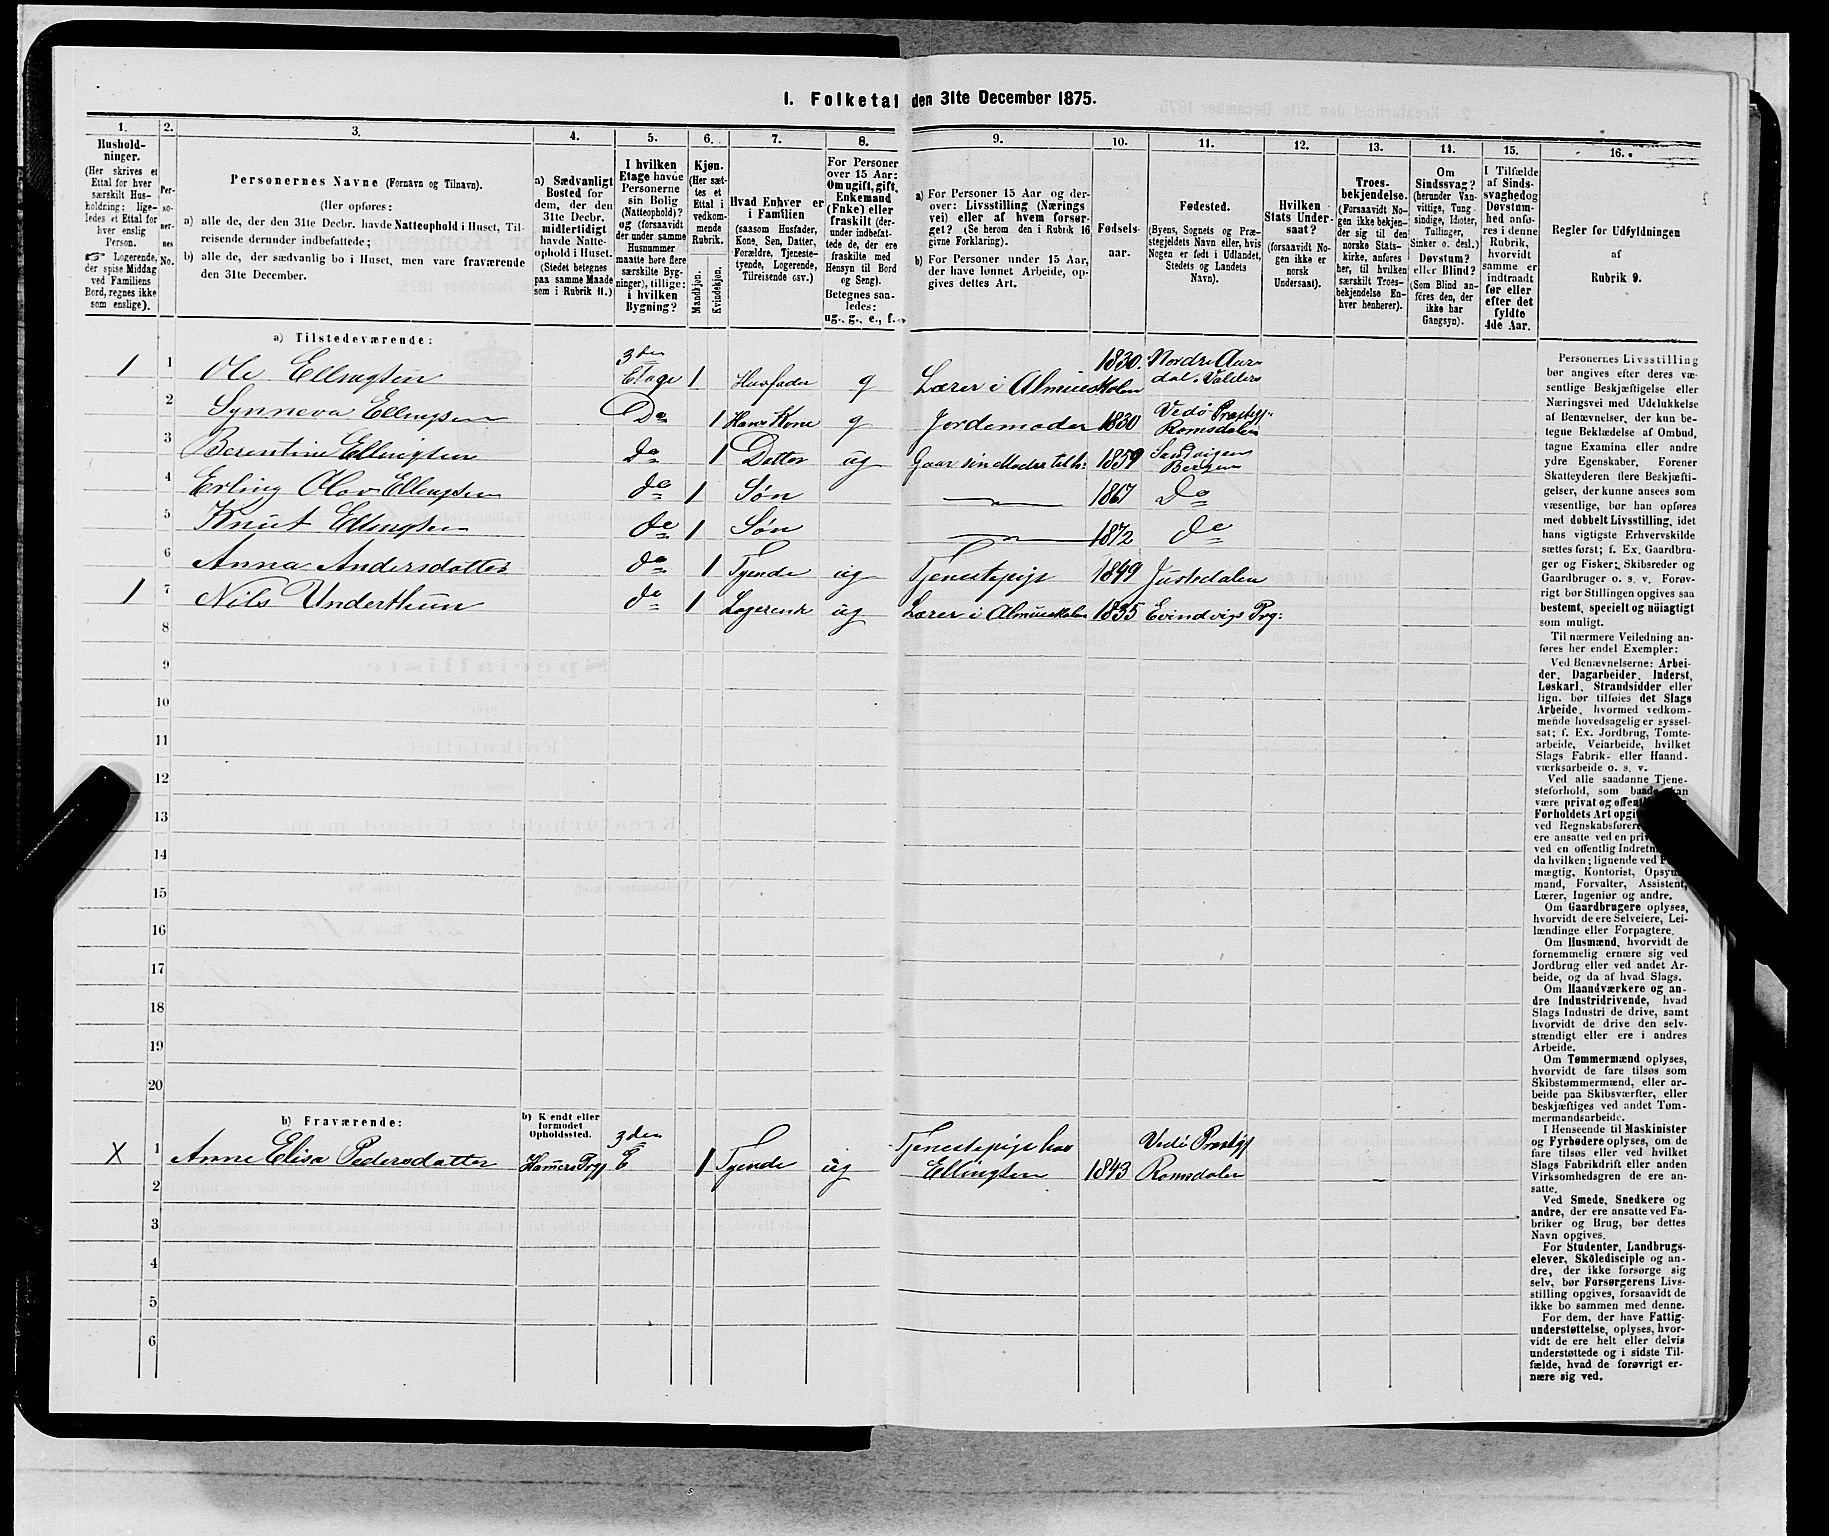 I. Folketal den 31te December 1875.
1. 2. 3. 4. 5. 6. 7. 8. 9. 10. 11. 12. 13. 14. 15. 16.
Hushold-
ninger.
(Her skrives et
Ettal for hver
særskilt Hus-
holdning; lige-
ledes et Ettal for
hver enslig
Person.
Logerende,
der spise Middag
ved Familiens
Bord, regnes ikke
som enslige).
Per-
so-
ner-
nes
No.
Personernes Navne (Fornavn og Tilnavn).
(Her opføres:
a) alle de, der den 31te Decbr. havde Natteophold i Huset, Til-
reisende derunder indbefattede;
b) alle de, der sædvanlig bo i Huset, men vare fraværende
den 31te December.
a) Sædvanligt
Bosted for
dem, der den
31te Decbr.
midlertidigt
havde Natte-
ophold i Huset.
(Stedet betegnes
paa samme Maade
som i Rubrik 11.)
I hvilken
Etage havde
Personerne
sin Bolig
(Natteophold)?
og (forsaavidt
der under samme
Husnummer
maatte høre flere
særskilte Byg-
ninger), tillige:
i hvilken
Bygning?
Kjøn.
(Her sæt-
tes et
Ettal i
vedkom-
mende
Rubrik.
Mandkjøn.
Kvindekjøn.
Hvad Enhver er
i Familien
(saasom Husfader,
Kone, Søn, Datter,
Forældre, Tjeneste-
tyende, Logerende,
Tilreisende osv.)
For Personer
over 15 Aar:
Om ugift, gift,
Enkemand
(Enke) eller
fraskilt (der-
under indbefat-
tede de, der ere
fraskilte med
Hensyn til Bord
og Seng).
Betegnes saa-
ledes:
ug., g., e., f.
a) For Personer 15 Aar og der-
over: Livsstilling (Nærings
vei) eller af hvem forsør-
get? (Se herom den i Rubrik 16
givne Forklaring).
b) For Personer under 15 Aar,
der have lønnet Arbeide, op-
gives dettes Art.
Fødsels-
aar.
Fødested.
(Byens, Sognets og Præ-
stegjeldets Navn eller, hvis
Nogen er født i Udlandet,
Stedets og Landets
Navn).
Hvilken
Stats Under-
saat?
(forsaavidt No-
gen ikke er
norsk
Undersaat).
Troes-
bekjendelse.
(Forsaavidt No-
gen ikke bekjen-
der sig til den
norske Stats-
kirke, anføres
her, til hvilken
særskilt Troes-
bekjendelse En-
hver henhører).
Om
Sindssvag?
(herunder Van-
vittige, Tung-
sindige, Idioter,
Tullinger,
Sinker o. desl.)
Døvstum?
eller Blind?
(Som Blind an-
føres den, der
ikke har
Gangsyn).
I Tilfælde
af Sinds-
svaghed og
Døvstum-
hed anfø-
res i denne
Rubrik,
hvorvidt
samme er
indtraadt
før eller
efter det
fyldte
4de Aar.
Regler for Udfyldningen
af
Rubrik 9.
a) Tilstedeværende:
1 1 Ole Ellingsen 3den Etage 1 Husfader g Lærer i Almueskolen 1830. Nordre Aurdal. Valders
2 Synneva Ellingsen Do 1 Hans Kone g Jordemoder 1830 Vedø Præstgj. Romsdalen
3 Berentine Ellingsen do 1 Datter ug Gaar sin Moder tilh: 1859 Bergen
4 Erling Olov Ellingsen do 1 Søn 1867 Do
5 Knut Ellingsen do 1 Søn 1872 do
6 Anna Andersdatter do 1 Tyende ug Tjenestepige 1849 Justedalen
1 7 Nils Underthun do 1 Logerende ug Lærer i Almueskolen 1835 Evindvigs Prg:
8
9
10
11
12
13
14
15
16
17
18
19
20
b) Fraværende:
b) Kendt eller
formodet
Opholdssted.
X 1 Anne Elisa Pedersdatter Hamers Prgj 3den E 1 Tyende ug Tjenestepige hos Ellingsen 1843 Vedø Præstgj Romsdalen
2
3
4
5
6
Personernes Livsstilling
bør angives efter deres væ-
sentlige Beskjæftigelse eller
Næringsvei med Udelukkelse
af Benævnelser, der kun be-
tegne Beklædelse af Ombud,
tagne Examina eller andre
ydre Egenskaber. Forener
Skatteyderen flere Beskjæfti-
gelser, der kunne ansees som
væsentlige, bør han opføres
med dobbelt Livsstilling, idet
hans vigtigste Erhvervskilde
sættes først; f. Ex. Gaardbru-
ger og Fisker; Skibsreder og
Gaardbruger o. s. v. Forøv-
rigt bør Stillingen opgives saa
bestemt, specielt og nöiagtigt
som muligt.
Til nærmere Veiledning an-
føres her endel Exempler:
Ved Benævnelserne: Arbei-
der, Dagarbeider, Inderst,
Løskarl, Strandsidder eller
lign. bør tilføies det Slags
Arbeide, hvormed vedkom-
mende hovedsagelig er syssel-
sat; f. Ex. Jordbrug, Tomte-
arbeide, Veiarbeide, hvilket
Slags Fabrik- eller Haand-
værksarbeide o. s. v.
Ved alle saadanne Tjene-
steforhold, som baade kan
være privat og
Forholdets Art
ved
ere ansatte ved en
ved en offentlig
da hvilken; lignende ved
mægtig, Kontorist,
mand, Forvalter, Assistent,
Lærer, Ingeniør og andre.
Om Gaardbrugere oplyses,
hvorvidt de ere Selveiere, Lei-
lændinge eller Forpagtere.
Om Husmænd, hvorvidt de
fornemmelig ernære sig ved
Jordbrug eller ved andet Ar-
beide, og da af hvad Slags.
Om Haandværkere og an-
dre Industridrivende, hvad
Slags Industri de drive, samt
hvorvidt de drive den selv-
stændigt eller ere i andres
Arbeide.
Om Tømmermænd oplyses,
hvorvidt de fare tilsøs som
Skibstømmermænd, eller ar-
beide paa Skibsværfter, eller
beskjæftiges ved andet Tøm-
mermandsarbeide.
I Henseende til Maskinister
og Fyrbødere oplyses, om de
fare tilsøs eller ved hvilket
Slags Fabrikdrift eller anden
Virksomhedsgren de ere an-
satte.
Ved Smede, Snedkere og
andre, der ere ansatte ved Fa-
briker og Brug, bør dettes
Navn opgives.
For Studenter, Landbrugs-
elever, Skoledisciple og an-
dre, der ikke forsørge sig
selv, bør Forsørgerens Livs-
stilling opgives, forsaavidt de
ikke bo sammen med denne.
For dem, der have Fattig-
understøttelse, oplyses, hvor-
vidt de ere helt eller delvis
understøttede og i sidste Til-
fælde, hvad de forøvrigt er-
nære sig ved.